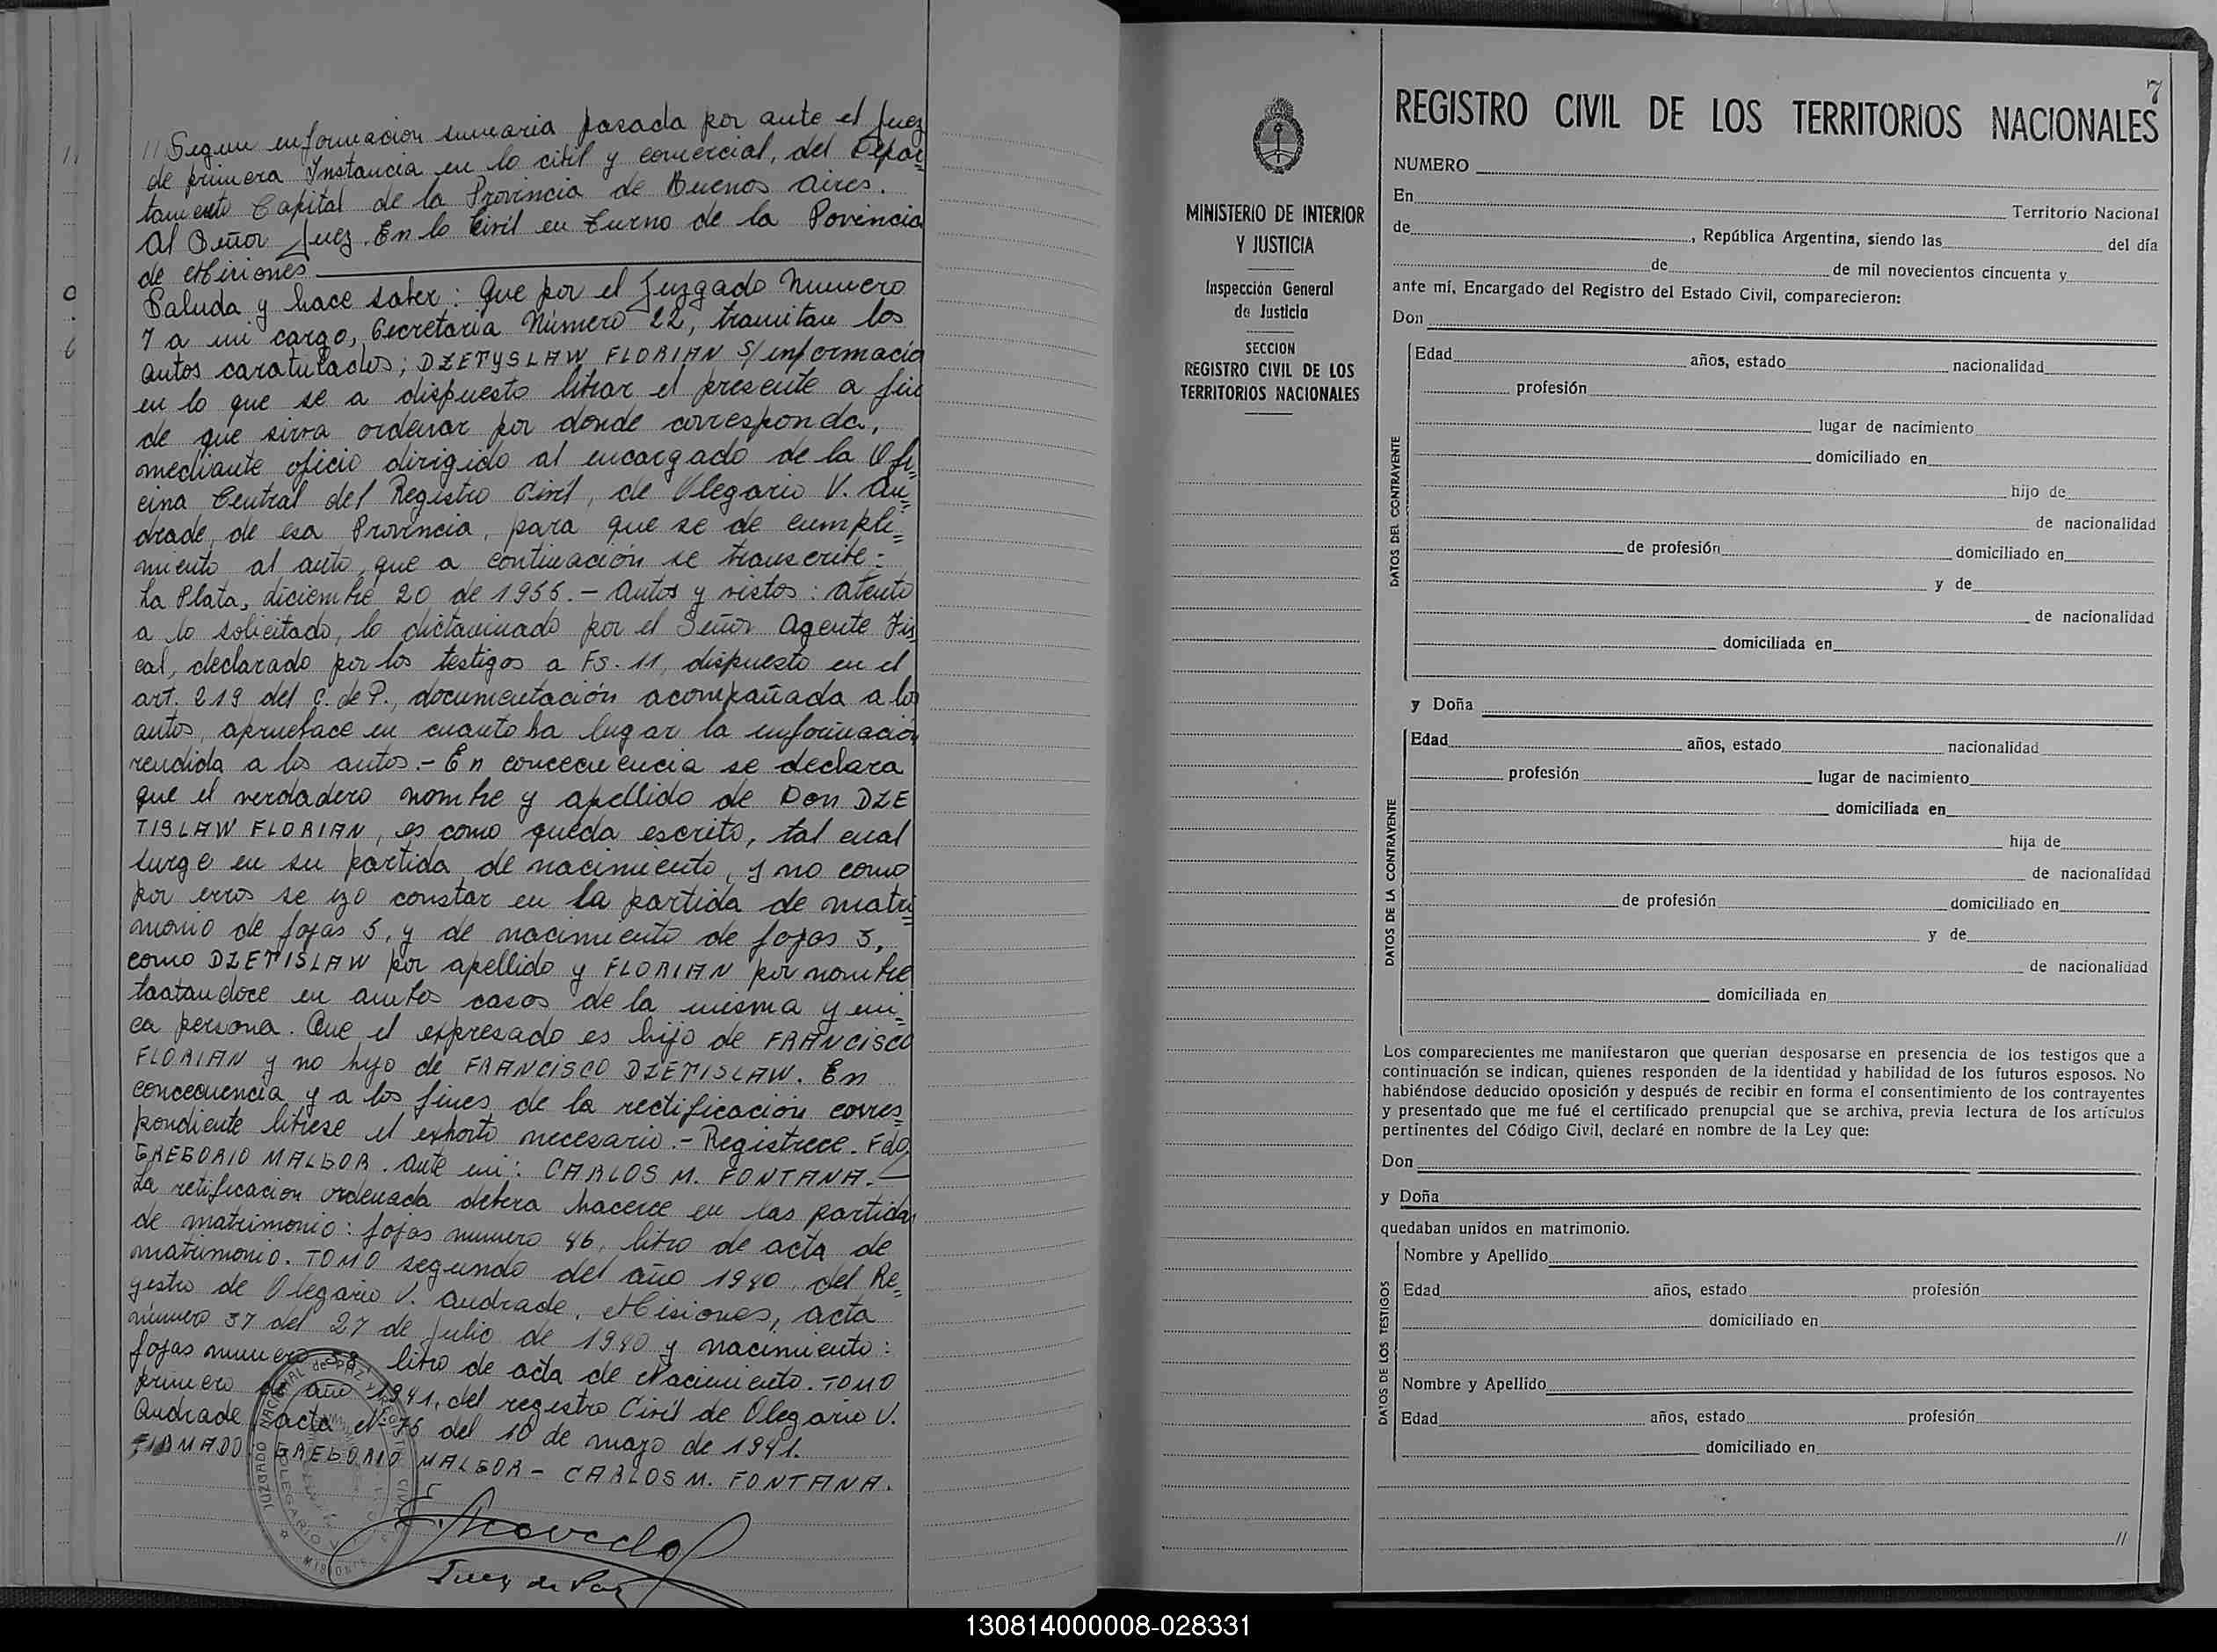 // Segun enformacion sumaria pasada por ante el Juez
de primera Instancia en lo cibil y comercial, del Depar=
tamento Capital de la Provincia de Buenos Aires.
Al Señor Juez. En lo Civil en turno de la Povincia
de Misiones
Saluda y hace saber: Que por el Juzgado Numero
7 a mi cargo, Secretaria Número 22, tramitan los
autos caratulados; DZETYSLAW FLORIAN S/informacio
en lo que se a dispuesto librar el presente a fin
de que sirva ordenar por donde corresponda,
mediante oficio dirigido al encargado de la Ofi=
cina Central del Registro Civil, de Olegario V. An=
drade, de esa Provincia, para que se de cumpli=
miento al auto, que a continuación se transcribe:
La Plata, diciembre 20 de 1956.- Autos y vistos: atento
a lo solicitado, lo dictaminado por el Señor Agente Fis=
cal, declarado por los testigos a FS. 11, dispuesto en el
art. 219 del C. de P., documentación acompañada a los
autos, apruebace en cuanto ha lugar la información
rendida a los autos.- En concecuencia se declara
que el verdadero nombre y apellido de Don DZE
TISLAW FLORIAN, es como queda escrito, tal cual
surge en su partida de nacimiento, y no como
por error se izo constar en la partida de matri=
monio de fojas 5, y de nacimiento de fojas 3,
como DZETISLAW por apellido y FLORIAN por nombre
taatandoce en ambos casos de la misma y uni=
ca persona. Que el expresado es hijo de FRANCISCO
FLORIAN y no hijo de FRANCISCO DZETISLAW. En
concecuencia y a los fines de la rectificación corres=
pondiente librese el exhorto necesario.- Registrece. Fdo/
GREGORIO MALGOR. Ante mi: CARLOS M. FONTANA.-
La retificacion ordenada debera hacerce en las partidas
de matrimonio: fojas numero 46, libro de acta de
matrimonio. TOMO segundo del año 1940, del Re=
gistro de Olegario V. Andrade. Misiones, acta
número 37 del 27 de Julio de 1940 y nacimiento:
fojas numero 38 libro de acta de Nacimiento. TOMO
primero de año 1941, del registro Civil de Olegario V.
Andrade acta Nº 76 del 10 de mayo de 1941.
FIRMADO: GREGORIO MALGOR - CARLOS M. FONTANA.
JUZGADO NACIONAL de PAZ Y REGISTRO CIVIL
OLEGARIO V.
MISIONES
Juez de Paz
7
REGISTRO CIVIL DE LOS TERRITORIOS NACIONALES
MINISTERIO DE INTERIOR
Y JUSTICIA
Inspección General
de Justicia
SECCION
REGISTRO CIVIL DE LOS
TERRITORIOS NACIONALES
NUMERO
En Territorio Nacional
de , República Argentina, siendo las del día
de de mil novecientos cincuenta y
ante mí, Encargado del Registro del Estado Civil, comparecieron:
Don
DATOS DEL CONTRAYENTE
Edad años, estado nacionalidad
profesión
lugar de nacimiento
domiciliado en
hijo de
de nacionalidad
de profesión domiciliado en
y de
de nacionalidad
domiciliada en
y Doña
DATOS DE LA CONTRAYENTE
Edad años, estado nacionalidad
profesión lugar de nacimiento
domiciliada en
hija de
de nacionalidad
de profesión domiciliado en
y de
de nacionalidad
domiciliada en
Los comparecientes me manifestaron que querian desposarse en presencia de los testigos que a
continuación se indican, quienes responden de la identidad y habilidad de los futuros esposos. No
habiéndose deducido oposición y después de recibir en forma el consentimiento de los contrayentes
y presentado que me fué el certificado prenupcial que se archiva, previa lectura de los artículos
pertinentes del Código Civil, declaré en nombre de la Ley que:
Don
y Doña
quedaban unidos en matrimonio.
DATOS DE LOS TESTIGOS
Nombre y Apellido
Edad años, estado profesión
domiciliado en
Nombre y Apellido
Edad años, estado profesión
domiciliado en
//
130814000008-028331